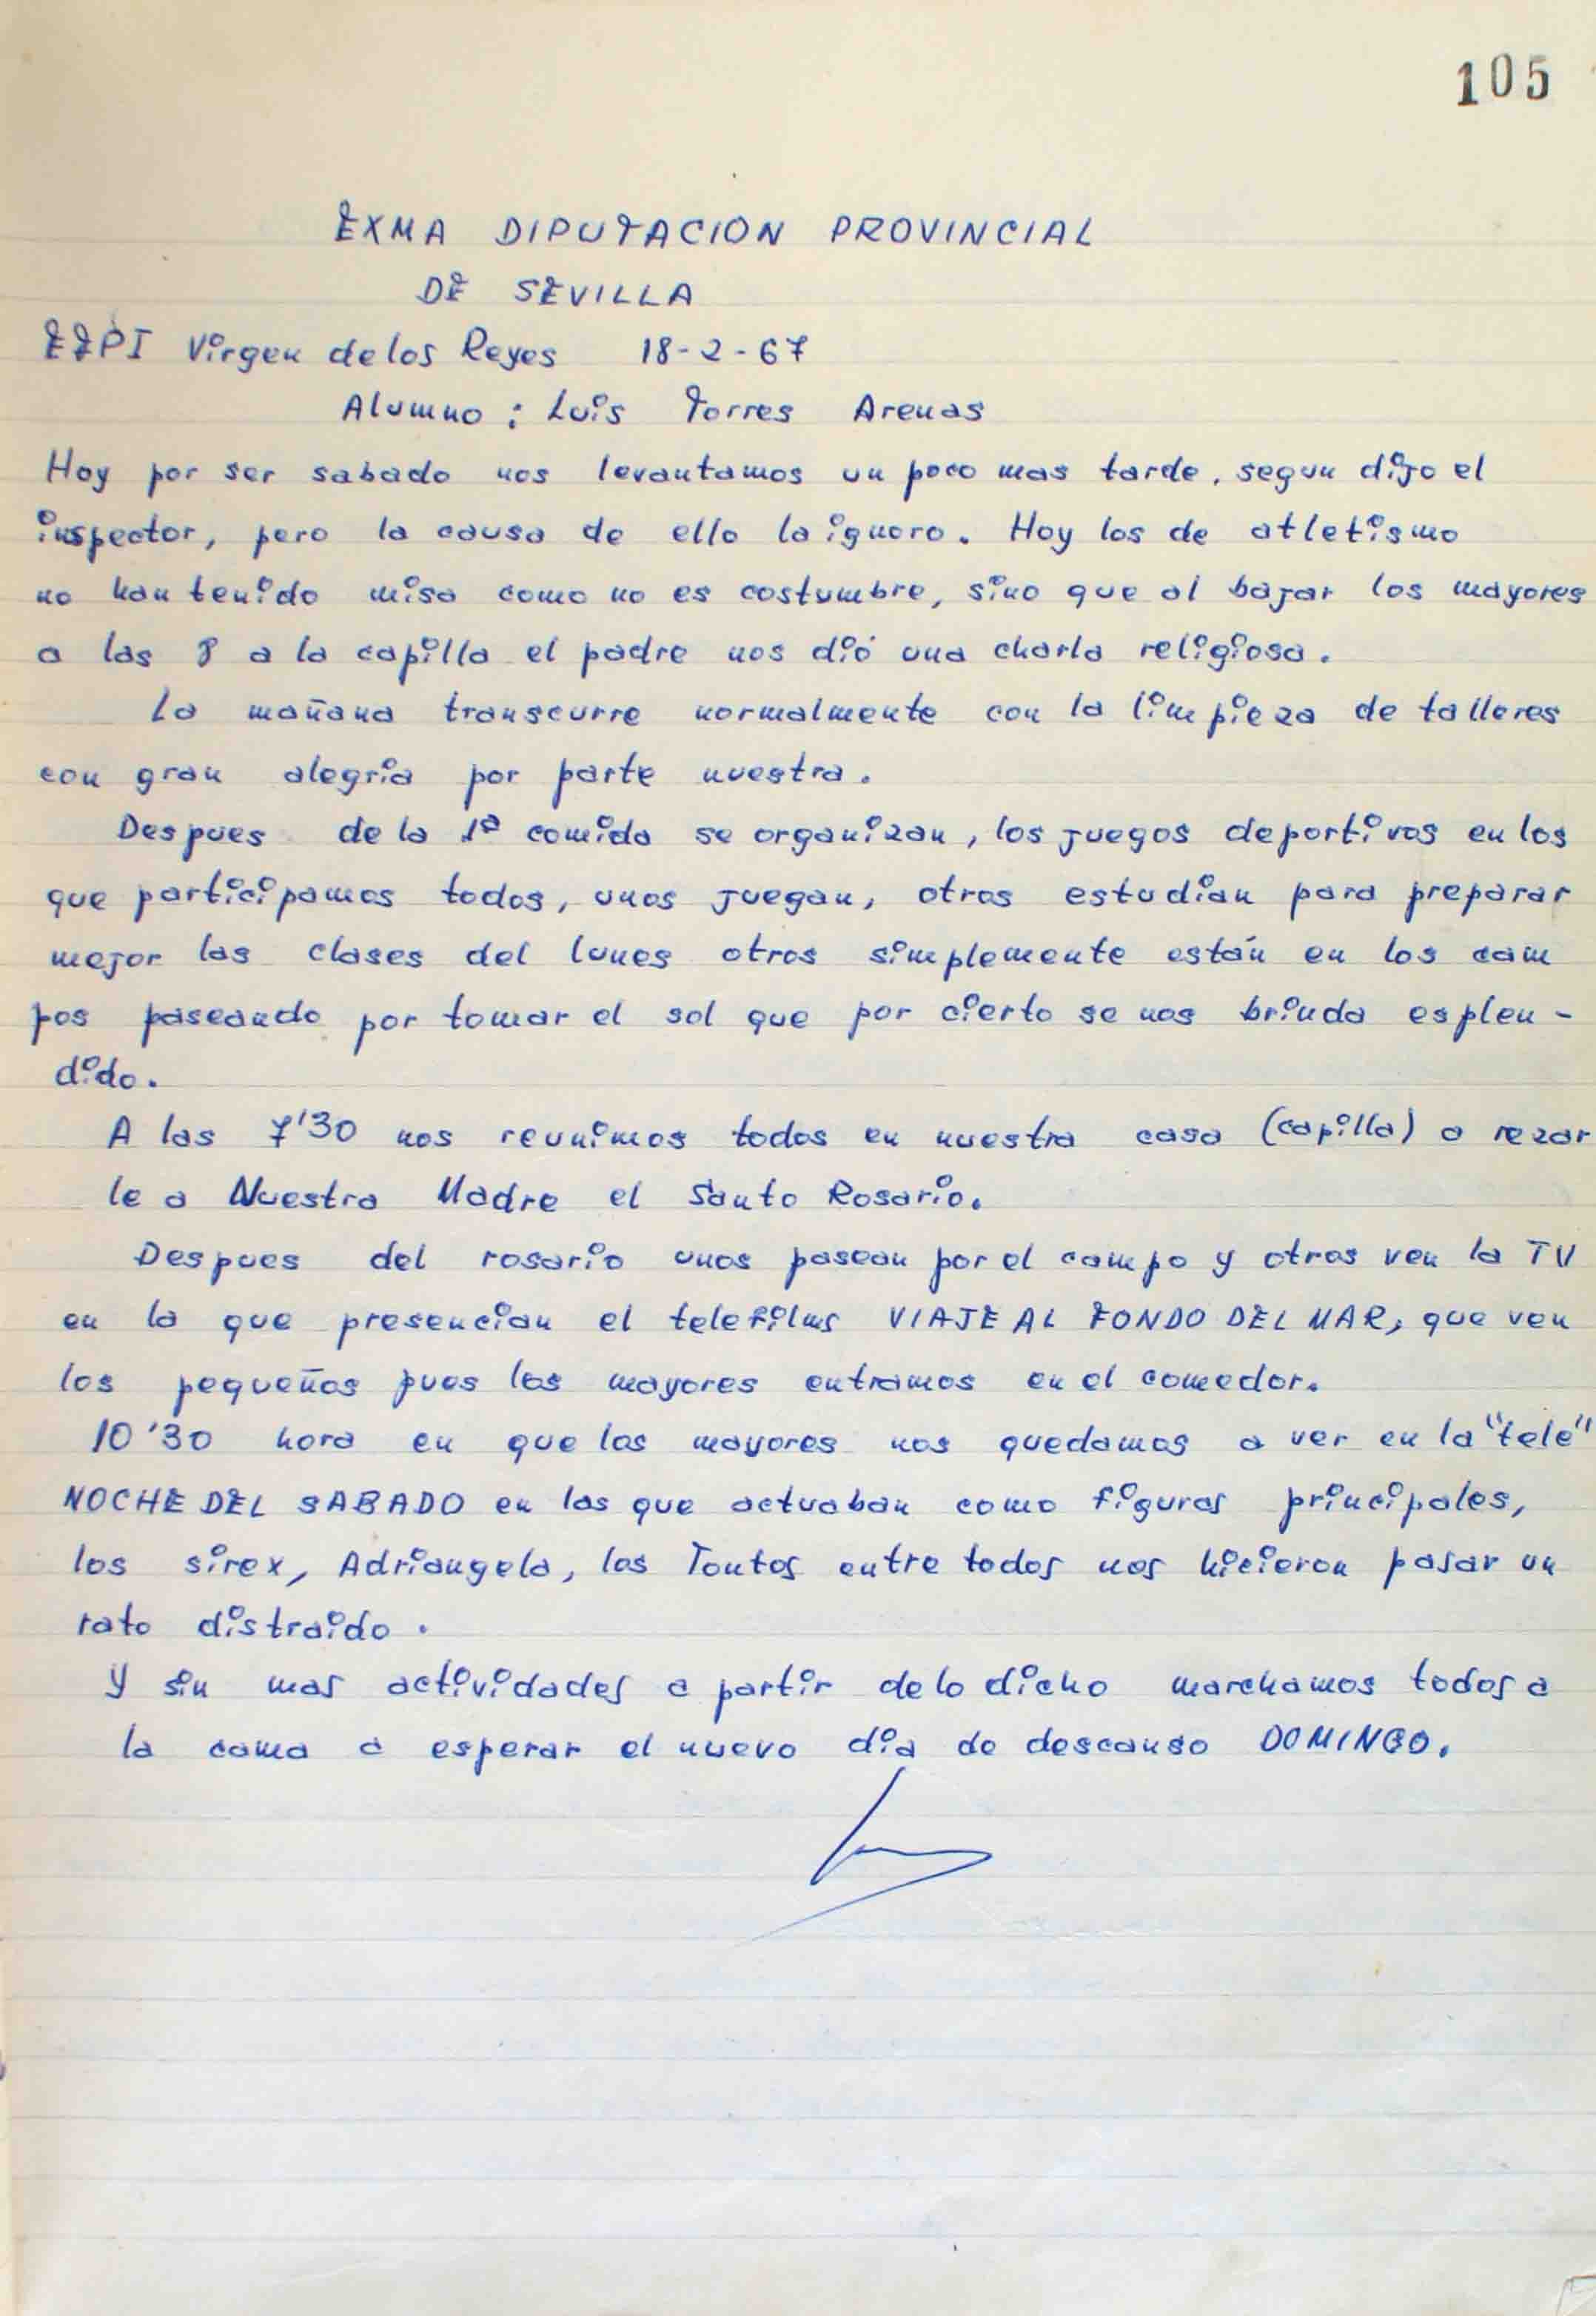 105
EXMA DIPUTACION PROVINCIAL
DE SEVILLA
EFPI Virgen de los Reyes 18-2-67
Alumno: Luis Torres Arenas
Hoy por ser sabado nos levantamos un poco mas tarde, segun dijo el
inspector, pero la causa de ello la ignoro. Hoy los de atletismo
no han tenido misa como no es costumbre, sino que al bajar los mayores
a las 8 a la capilla el padre nos dió una charla religiosa.
La mañana transcurre normalmente con la limpieza de talleres
con gran alegria por parte nuestra.
Despues de la 1ª comida se organizan, los juegos deportivos en los
que participamos todos, unos juegan, otros estudian para preparar
mejor las clases del lunes otros simplemente están en los cam
pos paseando por tomar el sol que por cierto se nos brinda esplen-
dido.
A las 7'30 nos reunimos todos en nuestra casa (capilla) a rezar
le a Nuestra Madre el Santo Rosario.
Despues del rosario unos pasean por el campo y otros ven la TV
en la que presencian el telefilms VIAJE AL FONDO DEL MAR, que ven
los pequeños pues los mayores entramos en el comedor.
10'30 hora en que los mayores nos quedamos a ver en la "tele"
NOCHE DEL SABADO en las que actuaban como figuras principales,
los sirex, Adriangela, los Tontos entre todos nos hicieron pasar un
rato distraido.
Y sin mas actividades a partir de lo dicho marchamos todos a
la cama a esperar el nuevo dia de descanso DOMINGO.